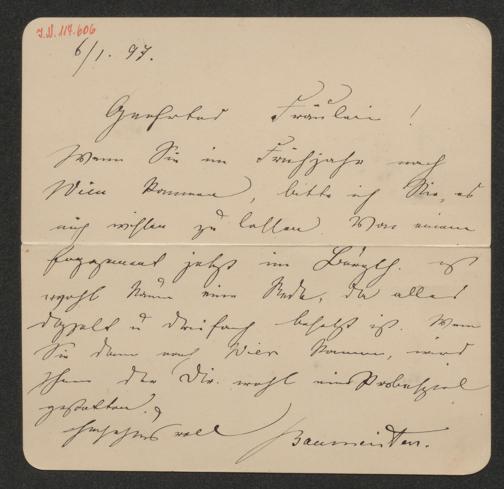 I.N. 117.606
6/1. 97.
Geehrtes Fräulein!
Wenn Sie im Frühjahr nach
Wien kommen, bitte ich Sie, es
mich wissen zu lassen. Von einem
Engagement jetzt im Burgth. ist
wohl kaum eine Rede, da alles
doppelt u dreifach besetzt ist. Wenn
Sie dann nach Wien kommen, wird
Ihnen der Dir. wohl ein Probespiel
gestatten.
Baumeister.